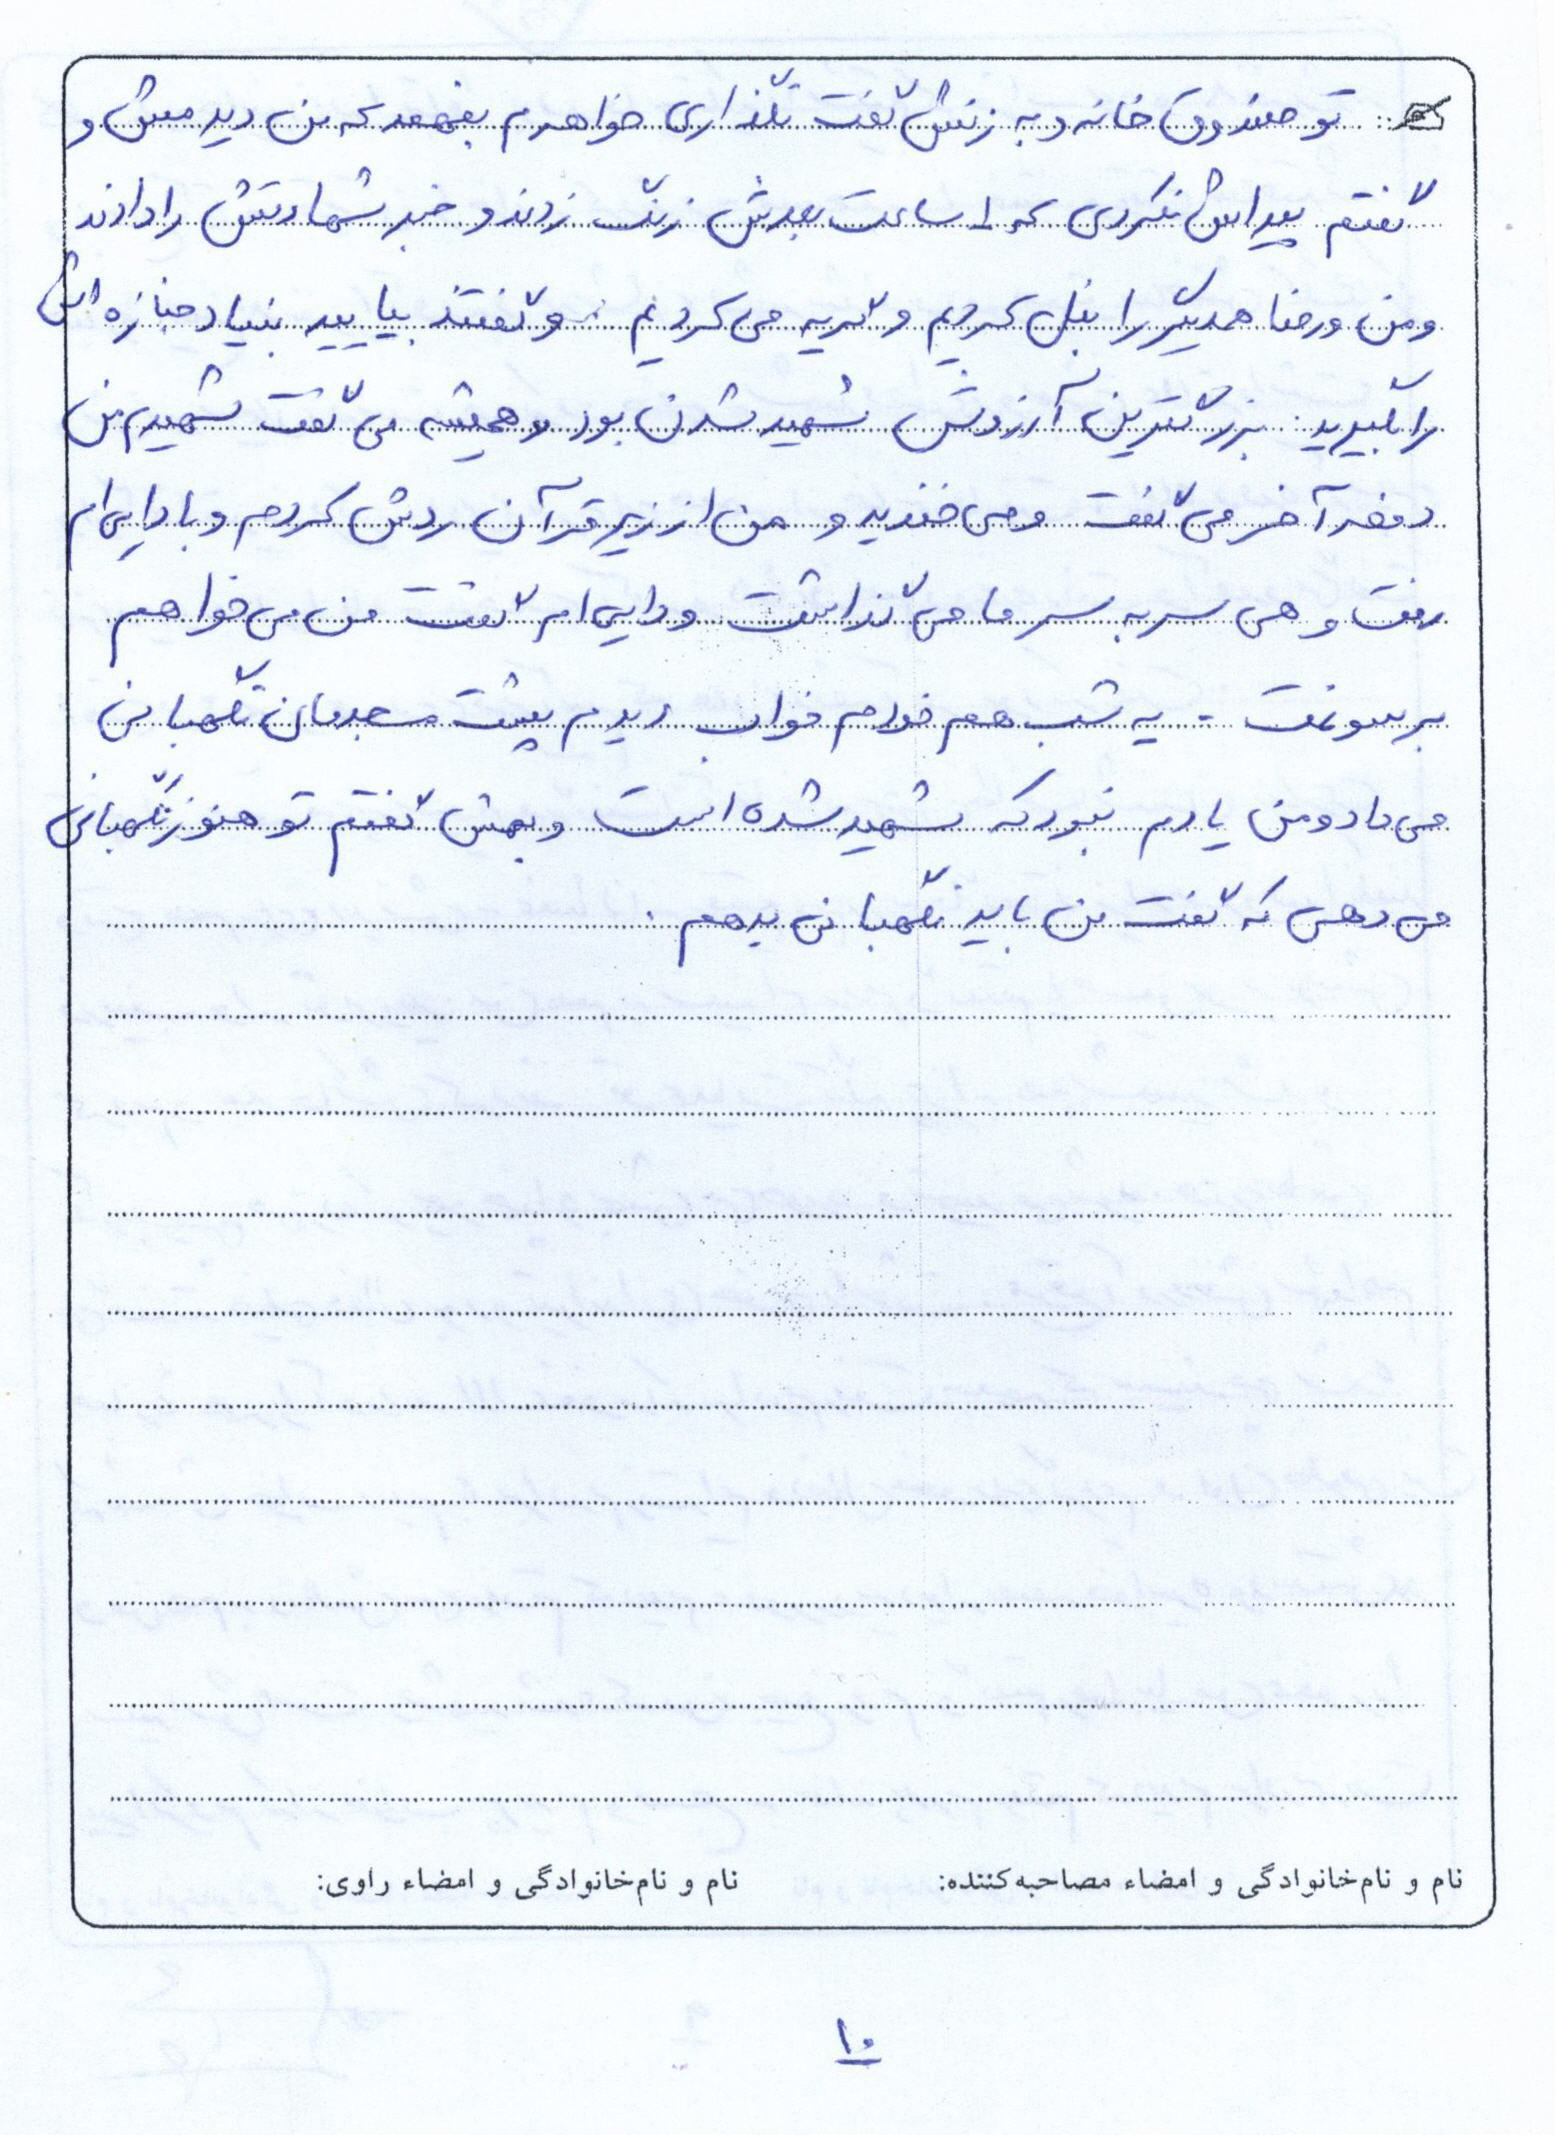 تو صندوق خانه و به زنش گفت نگذاری خواهرم بفهمد که من دیدمش و
گفتم پیداش نکردی که ۱ ساعت بعدش زنگ زدند و خبر شهادتش را دادند
و من و رضا همدیگر را بغل کردیم و گریه می کردیم . و گفتند بیایید بنیاد جنازه اش
را بگیرید . بزرگترین آرزوش شهید شدن بود و همیشه می گفت شهیدم من
دفعه آخر می گفت و می خندید و من از زیر قرآن ردش کردم و با دایی ام
رفت و هی سر به سر ما می گذاشت و دایی ام گفت من می خواهم
یه شب هم خودم خواب دیدم پشت مسجدمان نگهبانی
می داد و من یادم نبود که شهید شده است و بهش گفتم تو هنوز نگهبانی
می دهی که گفت من باید نگهبانی بدهم .
نام و نام‌خانوادگی و امضاء مصاحبه‌کننده: نام و نام‌خانوادگی و امضاء راوی:
۱۰